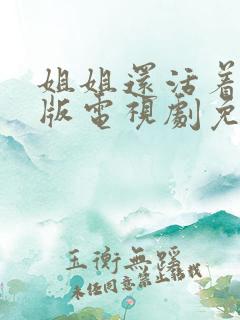 姐姐還活着
版電視劇免
玉衡無蹊
未经同意禁止转载